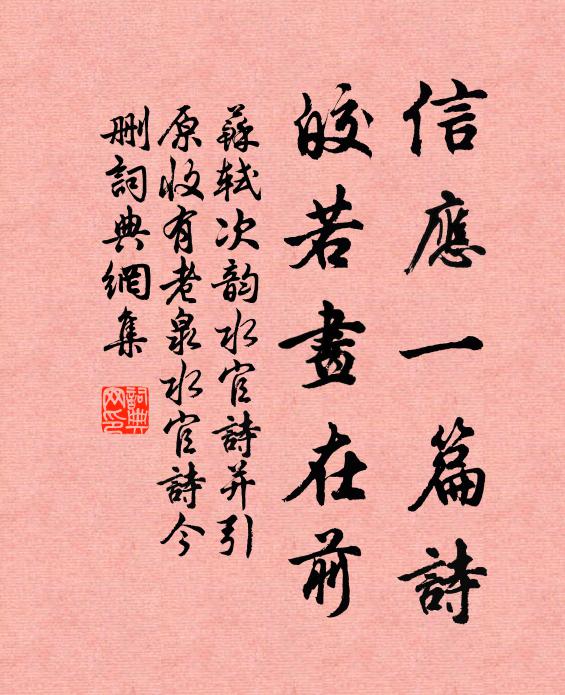 信應一篇詩
皎若畫在前
蘇軾次韵水官詩并引
原收有老泉水官詩今
刪詞典網集
詞典
网印